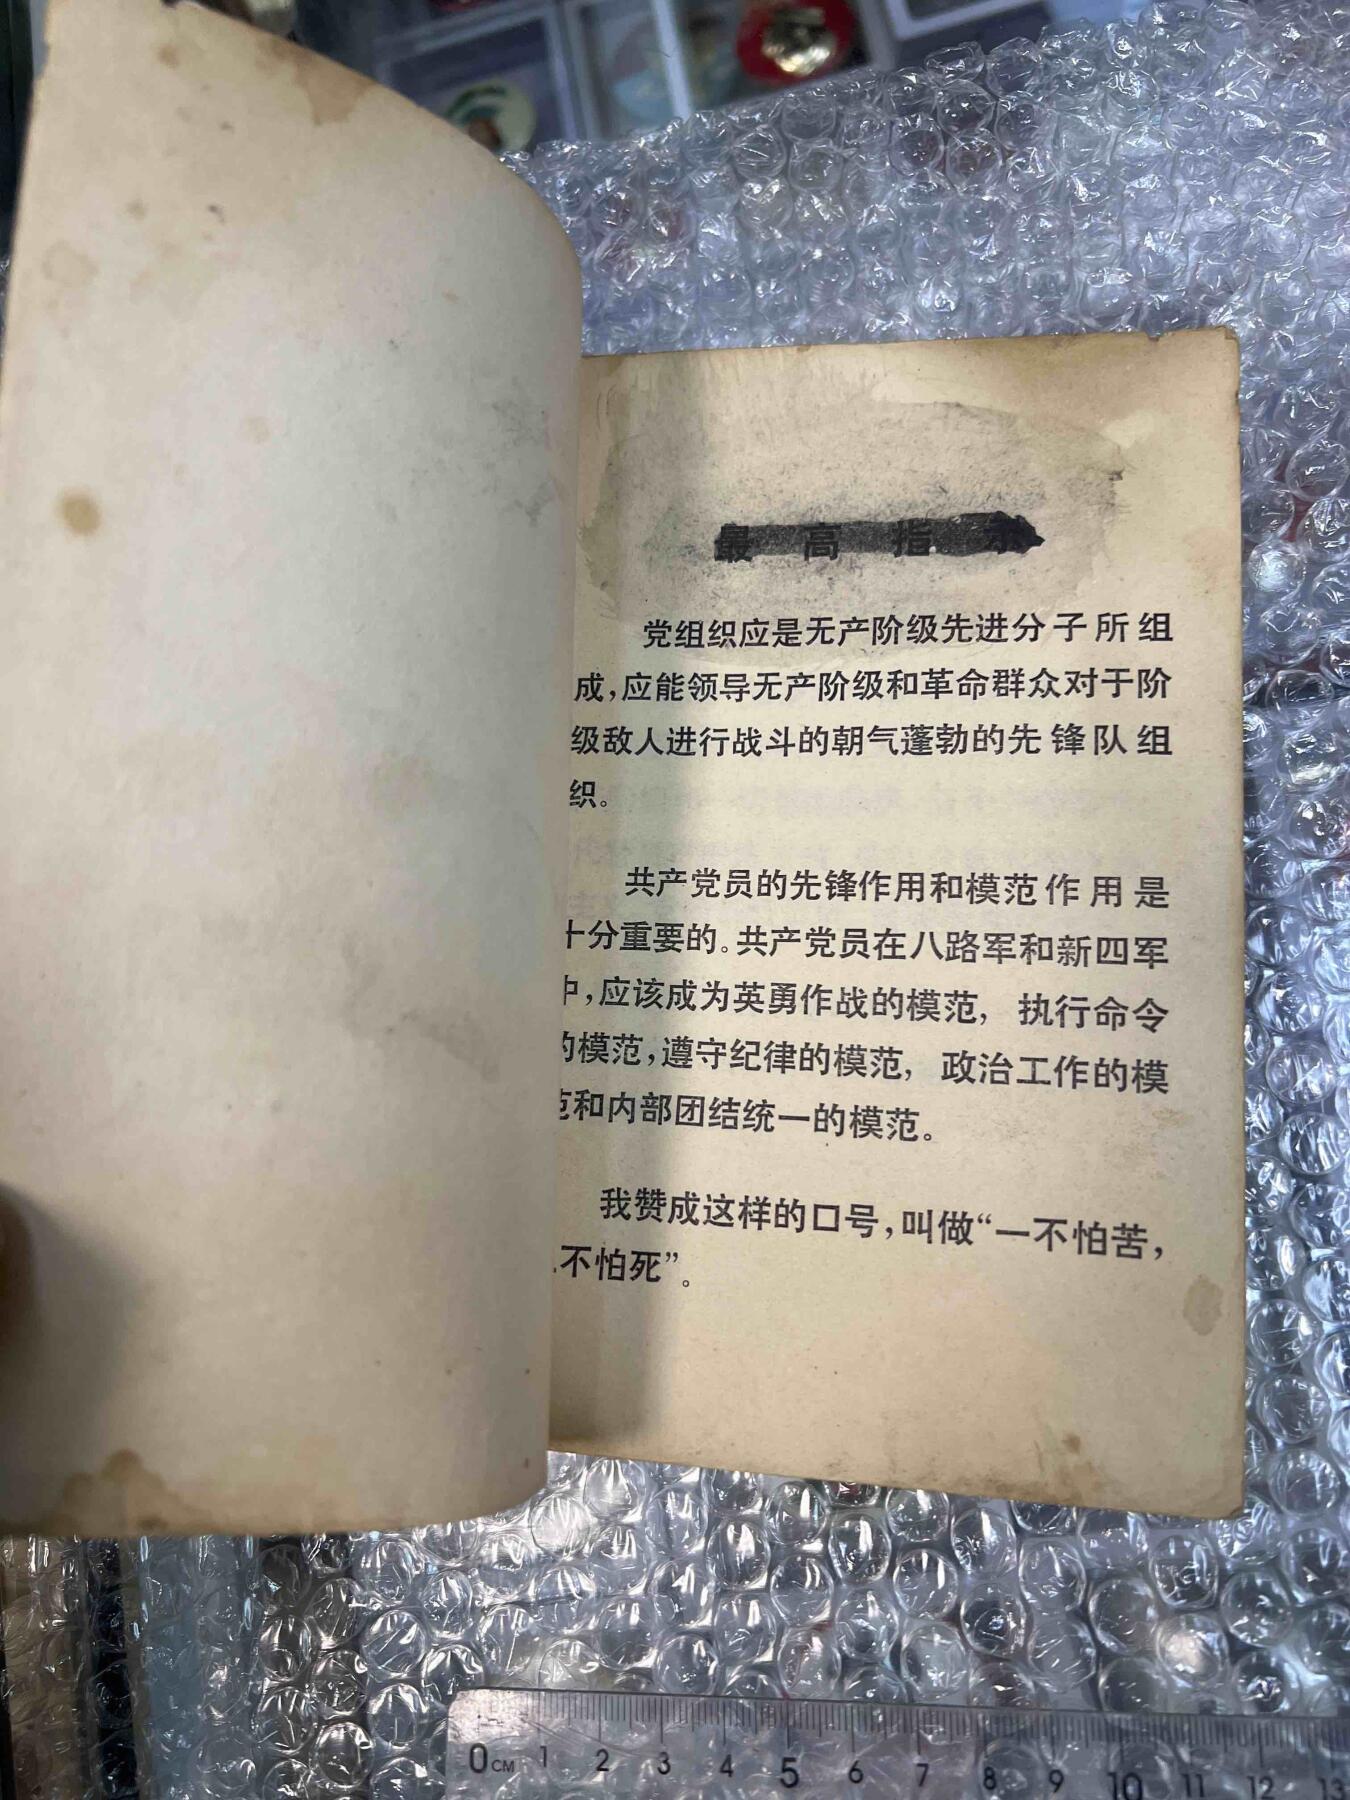 最高指示
党组织应是无产阶级先进分子所组
成，应能领导无产阶级和革命群众对于阶
级敌人进行战斗的朝气蓬勃的先锋队组
织。
共产党员的先锋作用和模范作用是
十分重要的。共产党员在八路军和新四军
中，应该成为英勇作战的模范，执行命令
的模范，遵守纪律的模范，政治工作的模
范和内部团结统一的模范。
我赞成这样的口号，叫做“一不怕苦，
二不怕死”。
0CM 1 2 3 4 5 6 7 8 9 10 11 12 13